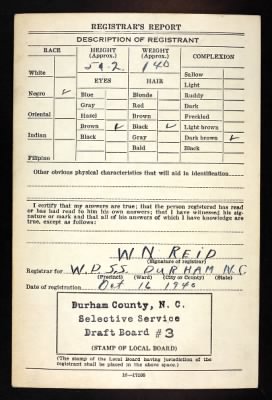 REGISTRAR'S REPORT
DESCRIPTION OF REGISTRANT
RACE HEIGHT (Approx.) WEIGHT (Approx.) COMPLEXION
5 9.2 140
White Sallow
EYES HAIR Light
Negro ✓ Blue Blonde Ruddy
Gray Red Dark
Oriental Hazel Brown Freckled
Brown ✓ Black ✓ Light brown
Indian Gray Dark brown ✓
Bald Black
Filipino
Other obvious physical characteristics that will aid in identification
I certify that my answers are true; that the person registered has read
or has had read to him his own answers; that I have witnessed his sig-
nature or mark and that all of his answers of which I have knowledge
are true, except as follows:
W N REID
(Signature of registrar)
Registrar for W.D. S.S. DURHAM N.C.
(Precinct) (Ward) (City or County) (State)
Date of registration Oct 16 1940
Durham County, N. C.
Selective Service
Draft Board #3
(STAMP OF LOCAL BOARD)
(The stamp of the Local Board having jurisdiction of the
registrant shall be placed in the above space.)
16-17105